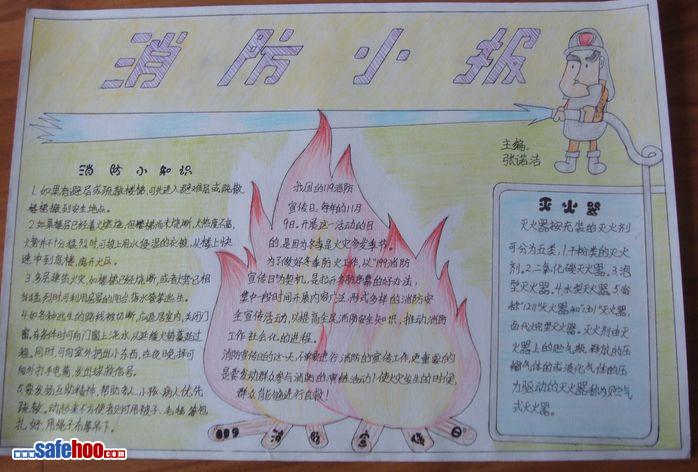 消防小报
主编:
张诺洁
消防小知识
1.如果有避层或疏散楼梯,可先进入避难层或疏散
楼梯撤到安全地点。
2.如果楼层已经着火燃烧,但楼梯尚未烧断,火势
并不十分猛烈时,可披上用水浸湿的衣被,从楼上快
速冲到底楼,离开火区。
3.多层建筑火灾,如楼梯已经烧断,或者火势已相
当猛烈时,可利用房屋的阳台
4.如各种逃生的路线被切断,应退居室内,关闭门
窗,有条件时可向门窗上浇水,以延缓火势蔓延过
程。同时,可向室外扔出小东西,在夜晚,择可
向外打手电筒,发出求救信号。
5.要发扬互助精神,帮助老人、小孩、病人优先
疏散。
扎好,用绳子布条吊下。
我国的119消防
宣传日,每年的11月
9日。开展这一活动的目
的,是因为冬季是火灾多发季节。
为了做好冬季防火工作,以“119消防
宣传日”为契机,是拉开
集中一段时间开展内容广泛、形式多样的消防安
全宣传活动,以提高全民消防安全知识,推动消防
工作社会化的进程。
消防宣传日的这一天,不单单进行消防的宣传工作,更重要的
是要发动群众参与消防的演练活动!使火灾发生的时候,
群众能够进行自救!
119消防宣传日
灭火器
灭火器按充装的灭火剂
可分为五类,1.干粉类的灭火
剂。2.二氧化碳灭火器。3.泡
沫型灭火器。4.水型灭火器。5.卤
“1211”灭火器和“1301”灭火器,
灭火剂由灭
火器上的贮气瓶释放的压
缩气体的或液化气体的压
力驱动的灭火器称为贮气
式灭火器。
www.safehoo.com